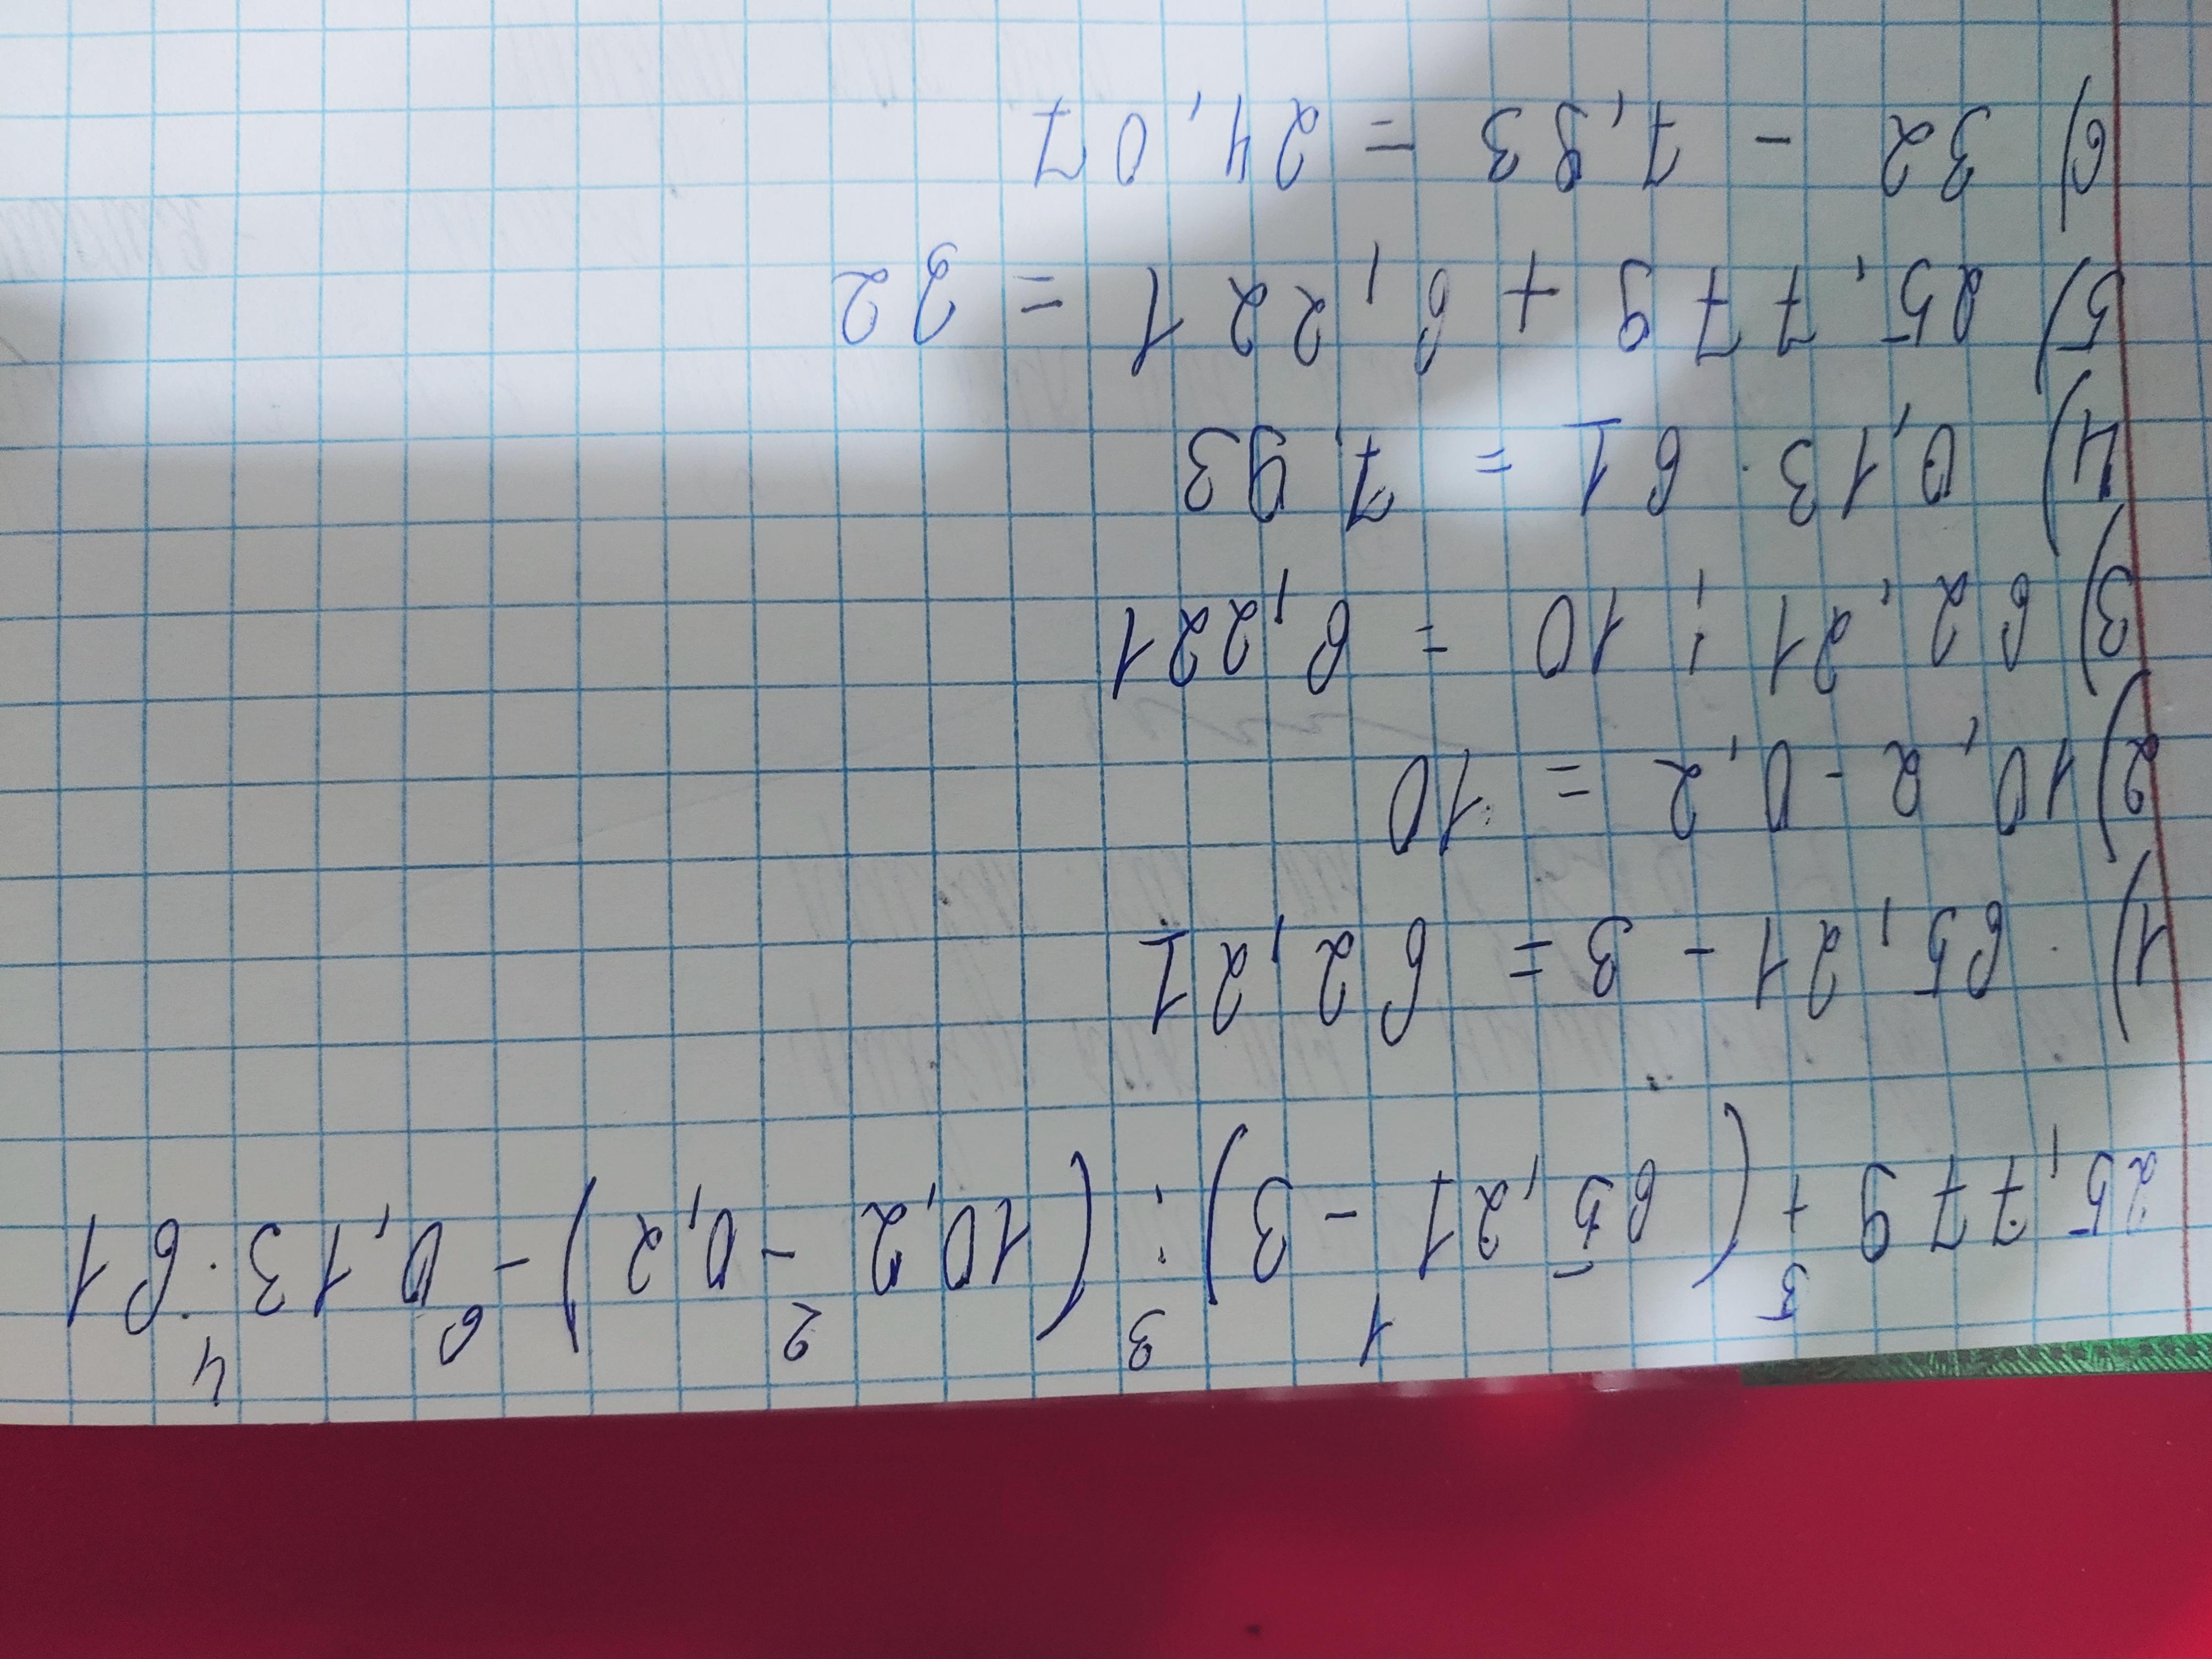 4
5 1 3 2 6
25,779 + (65,21 - 3) : (10,2 - 0,2) - 0,13 · 61
1) 65,21 - 3 = 62,21
2) 10,2 - 0,2 = 10
3) 62,21 : 10 = 6,221
4) 0,13 · 61 = 7,93
5) 25,779 + 6,221 = 32
6) 32 - 7,93 = 24,07